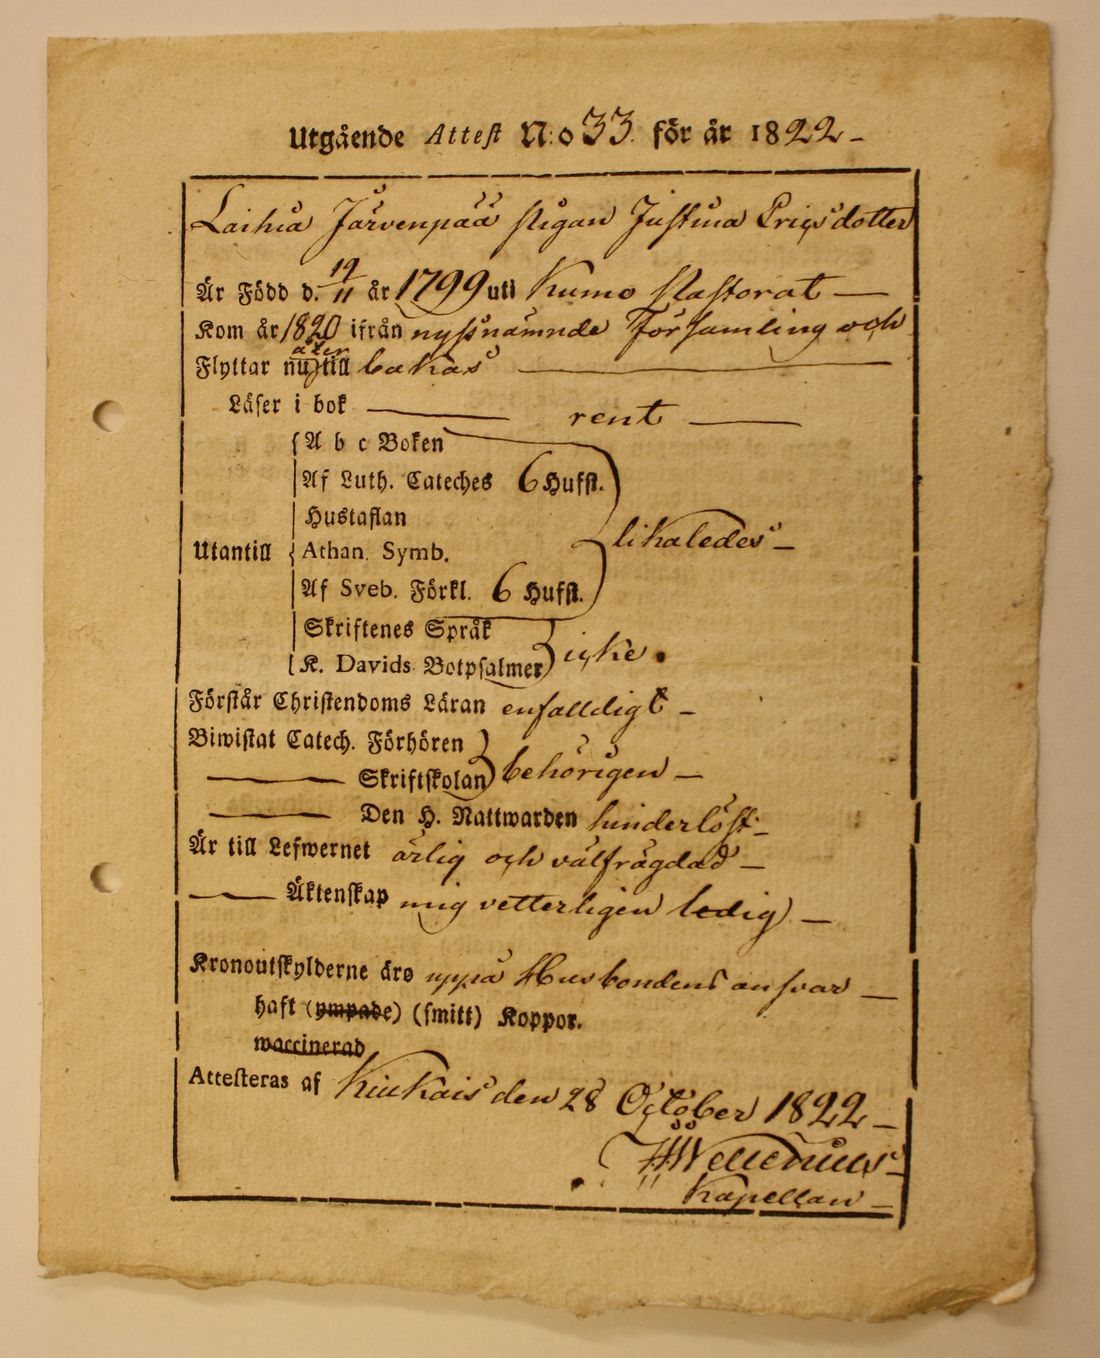 Utgående Attest N:o 33. för år 1822
Laihia Järvenpää pigan Justina Ericsdotter
Är Född d. 19/11 år 1799 uti Kumo Pastorat
Kom år 1820 ifrån nyssnämnde Församling och
åter
Flyttar nu till bakas
Läser i bok rent
A b c Boken
Af Luth. Cateches 6 Hufst.
Hustaflan
likaledes
Utantill Athan. Symb.
Af Sveb. Förkl. 6 Hufst.
Skriftenes Språk
K. Davids Botpsalmer icke
Förstår Christendoms Läran enfalldigt
Biwistat Catech. Förhören
Skriftskolan behörigen
Den H. Nattwarden hinderlöst
Är till Lefwernet ärlig och välfrägdad
Äktenskap mig vetterligen ledig
Kronoutskylderne äro uppå Husbondens answar
haft (ympade) (smitt) Koppor.
waccinerad
Attesteras af Kiukais den 28 October 1822
Kapellan